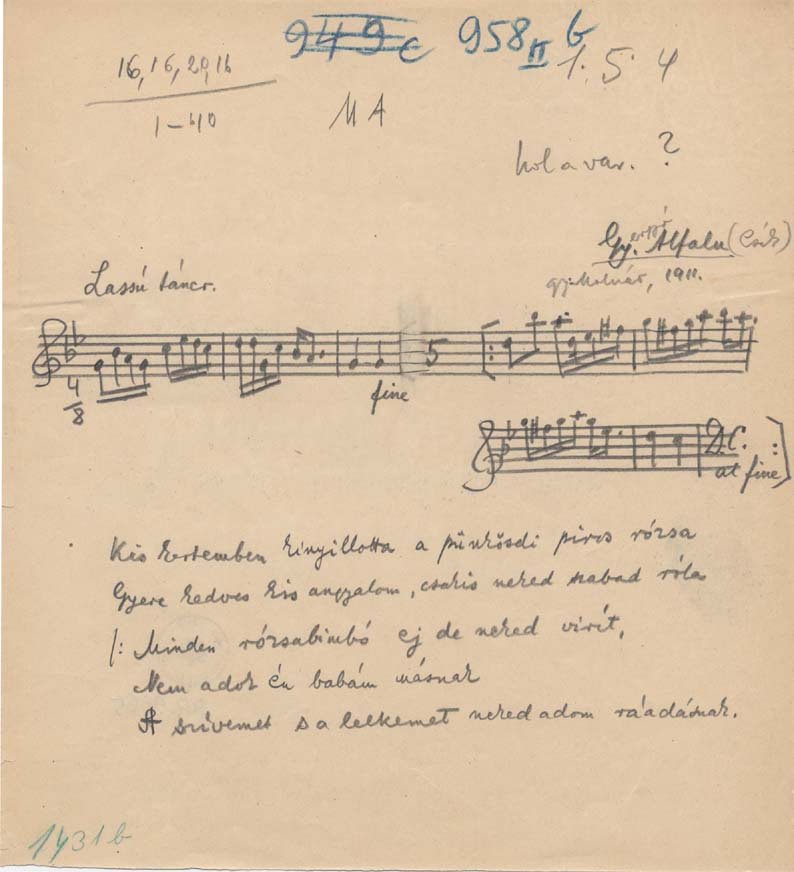 949 c 958 II b
16, 16, 20, 16
1–40
1. 5. 4
MA
hol a var. ?
Gy. Alfalu (Csík)
1911.
Lassú táncz.
4/8
fine
5
D.C.
al fine
Kis kertemben kinyillotta a pünkösdi piros rózsa
Gyere kedves kis angyalom, csakis neked szabad róla
/: Minden rózsabimbó ej de neked virít,
Nem adok én babám másnak
A szívemet s a lelkemet neked adom ráadásnak.
1431 b